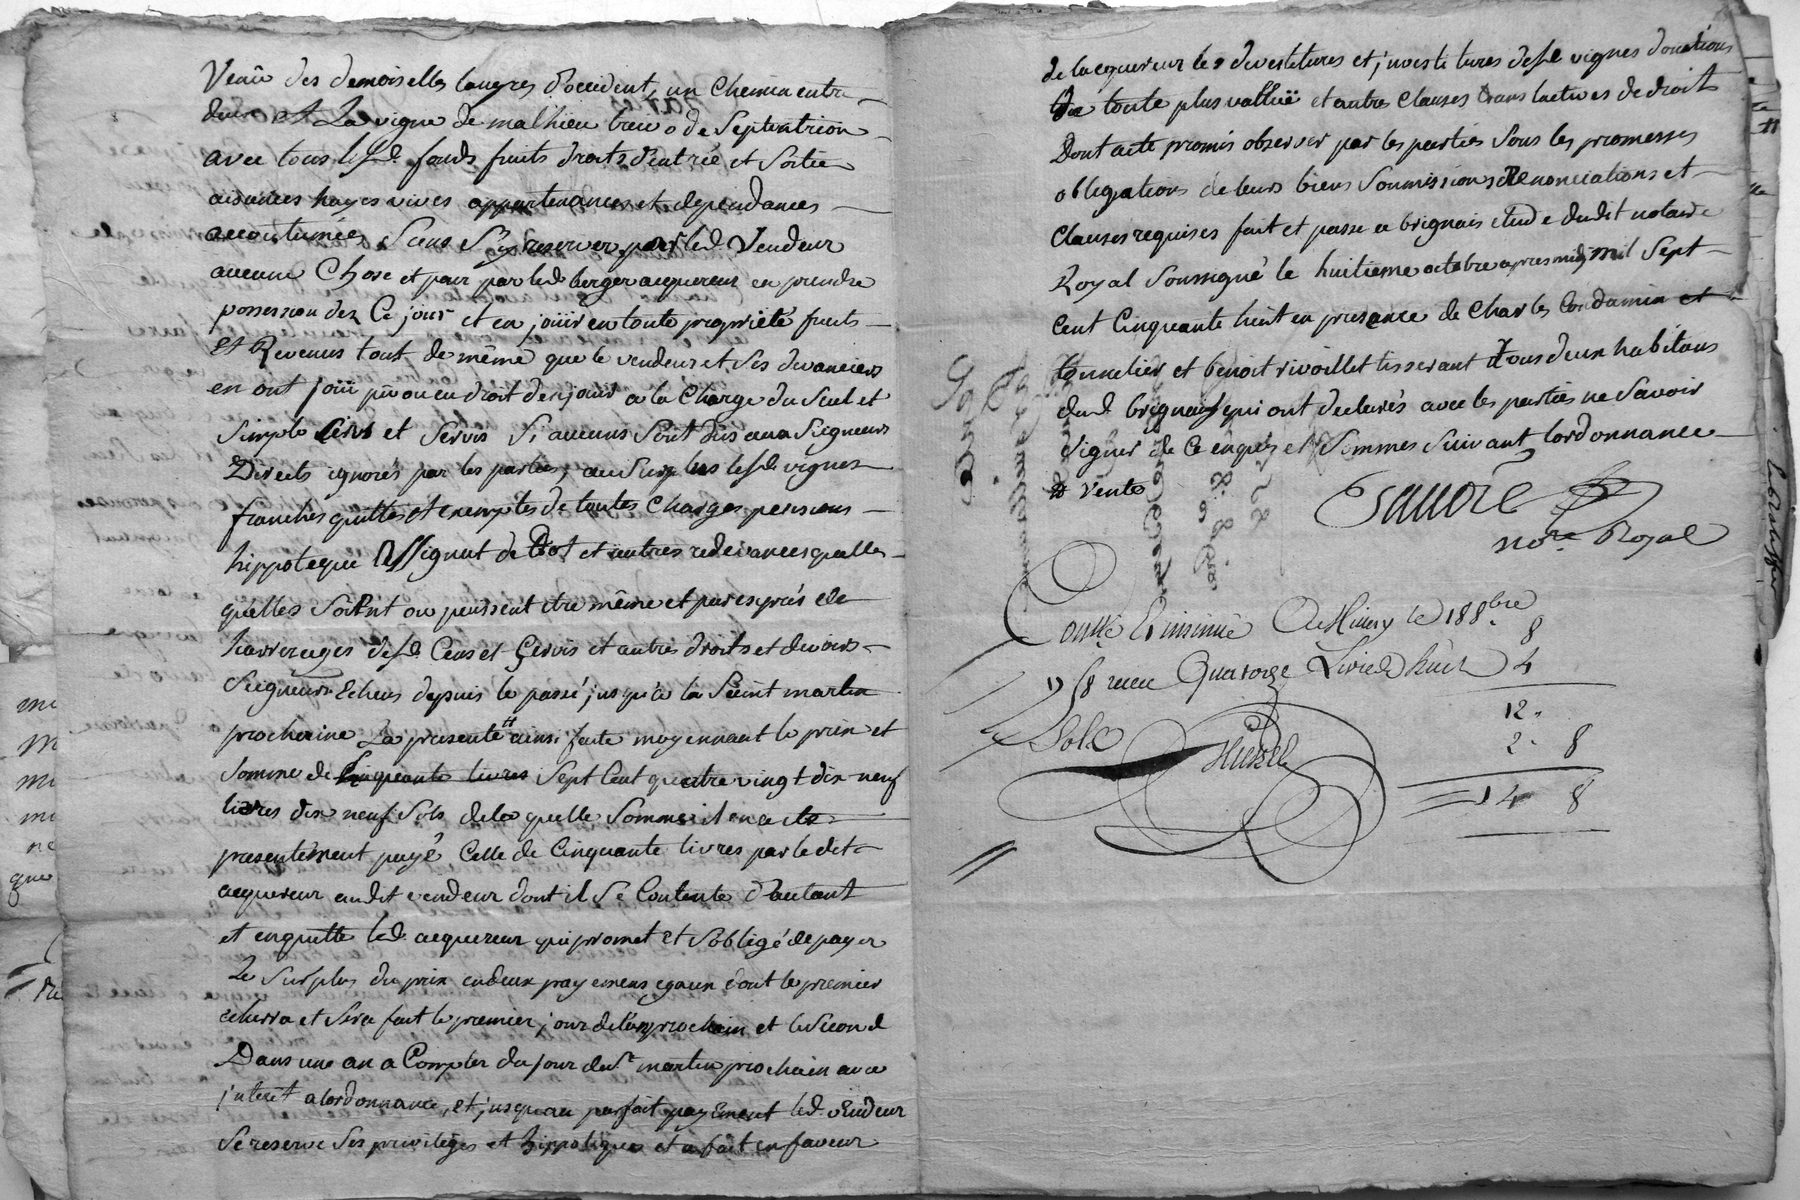 Venāt des demoiselles laugres d'occident, un chemin entre
deux et La vigne de mathieu treivo de Septentrion
avec tous lesd. fonds fruits droits d'entrée et Sortie
aisances hayes vives appartenances et dependances
accoutumées Sans S'y reserver par led. Vendeur
aucune Chose et pour par led berger acquereur en prendre
possession dez Ce jour et en joüir en toute propriété fruits
et Revenus tout de même que le vendeur et Ses devanciers
en ont joüi pû ou eu droit d'en joüir a la Charge du Seul et
Simple Cens et Servis Si aucuns Sont dûs aux Seigneurs
Directs ignorés par les parties, au Surplus lesd. vignes
franches quittes et exemptes de toutes Charges pensions
hippoteque Assignat de Dot et autres redevances quelles
quelles Soient ou puissent etre même et par exprés de
harrerages desd. Cens et Servis et autres droits et devoirs
Seigneurx Echeus depuis le passé jusqu'a la Saint martin
prochaine La presente # ainsi faite moyennant le prix et
Somme de Cinquante livres Sept Cent quatre vingt dix neuf
livres dix neuf Sols de la quelle Somme il en a ete
presentement payé Celle de Cinquante livres par le dit
acquereur audit vendeur dont il Se Contente D'autant
et en quitte led. acquereur qui promet et S'obligé de payer
Le Surplus du prix en deux payemens egaux dont le premier
echerra et Sera fait le premier jour de l'an prochain et le Second
Dans une an a Compter du jour de St martin prochain avec
jnteret a lordonnance, et jusqu'au parfait payement led. vendeur
Se reserve Ses privileges et hippoteques et a fait en faveur
de lacquereur les devestitures et jnvestitures desd vignes donations
de toute plus vallüe et autres Clauses translatives de droit
Dont acte promis observer par les parties Sous les promesses
obligations de leurs biens Soumissions Renonciations et
Clauses requises fait et passé a brignais etude dudit notaire
Royal Soussigné le huitieme octobre apres midy mil Sept
Cent Cinquante huit en presence de Charles Condamin et
tonnelier et benoit rivoillet tisserant Tous deux habitans
dud. brignais qui ont declarés avec les parties ne Savoir
Signer de Ce enquis et Sommés Suivant lordonnance
# vente
nore Royal
Conlle & insinué A Millery le 18 8bre 8
1758 receu Quatorze Livres huit 4
Sols
12"
2" 8
14 8